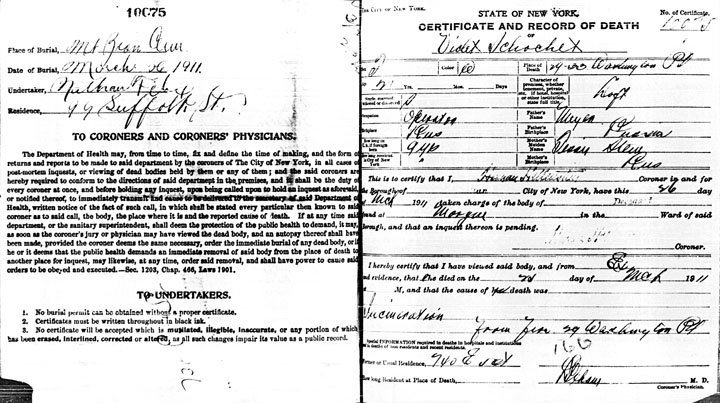 10075
Place of Burial,
Date of Burial, March 26 1911.
Undertaker,
Residence, 79 Suffolk St.
TO CORONERS AND CORONERS' PHYSICIANS.
The Department of Health may, from time to time, fix and define the time of making, and the form of
returns and reports to be made to said department by the coroners of The City of New York, in all cases of
post-mortem inquests, or viewing of dead bodies held by them or any of them; and the said coroners are
hereby required to conform to the directions of said department in the premises, and it shall be the duty
of every coroner at once, and before holding any inquest, upon being called upon to hold an inquest as aforesaid,
or notified thereof, to immediately transmit and cause to be delivered to the secretary of said Department of
Health, written notice of the fact of such call, in which shall be stated every particular then known to said
coroner as to said call, the body, the place where it is and the reported cause of death. If at any time said
department, or the sanitary superintendent, shall deem the protection of the public health to demand, it may,
as soon as the coroner's jury or physician may have viewed the dead body, and an autopsy thereof shall have
been made, provided the coroner deems the same necessary, order the immediate burial of any dead body, or if
he or it deems that the public health demands an immediate removal of said body from the place of death to
another place for inquest, may likewise, at any time, order said removal, and shall have power to cause said
orders to be obeyed and executed.—Sec. 1203, Chap. 466, Laws 1901.
TO UNDERTAKERS.
1. No burial permit can be obtained without a proper certificate.
2. Certificates must be written throughout in black ink.
3. No certificate will be accepted which is mutilated, illegible, inaccurate, or any portion of which
has been erased, interlined, corrected or altered, as all such changes impair its value as a public record.
THE CITY OF NEW YORK.
STATE OF NEW YORK.
No. of Certificate,
10075
CERTIFICATE AND RECORD OF DEATH
OF
Violet Schochet
Color
Place of Death 29-23 Washington Pl
Yrs. Mos. Days
Character of premises, whether tenement, private, etc. If hotel, hospital or other institution, state full title. Loft
Operator
Father's Name Meyer
Birthplace Rus
Father's Birthplace Russia
Mother's Maiden Name
Mother's Birthplace Rus
This is to certify that I, Coroner in and for
the Borough of City of New York, have this 26 day
of Mch 1911 taken charge of the body of Deceased
found at Morgue in the Ward of said
Borough, and that an inquest thereon is pending.
Coroner.
I hereby certify that I have viewed said body, and from
and evidence, that he died on the day of Mch 1911
M, and that the cause of death was
Incineration
from fire 29 Washington Pl
Special INFORMATION required in deaths in hospitals and institutions
166
Former or Usual Residence, 740 E
How long Resident at Place of Death,
M. D.
Coroner's Physician.